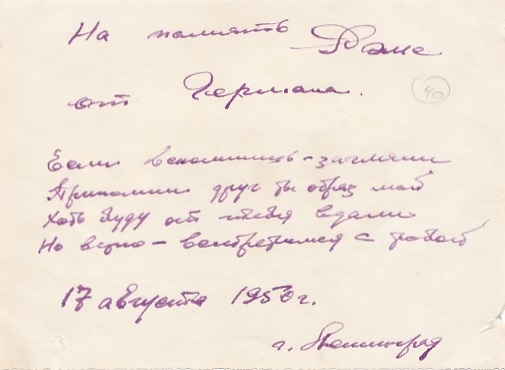 На память Роме
от Германа.
40
Если вспомнишь – загляни
Припомни друг ты образ мой
Хоть буду от тебя вдали
Но верно – встретимся с тобой
17 августа 1950 г.
г. Ленинград